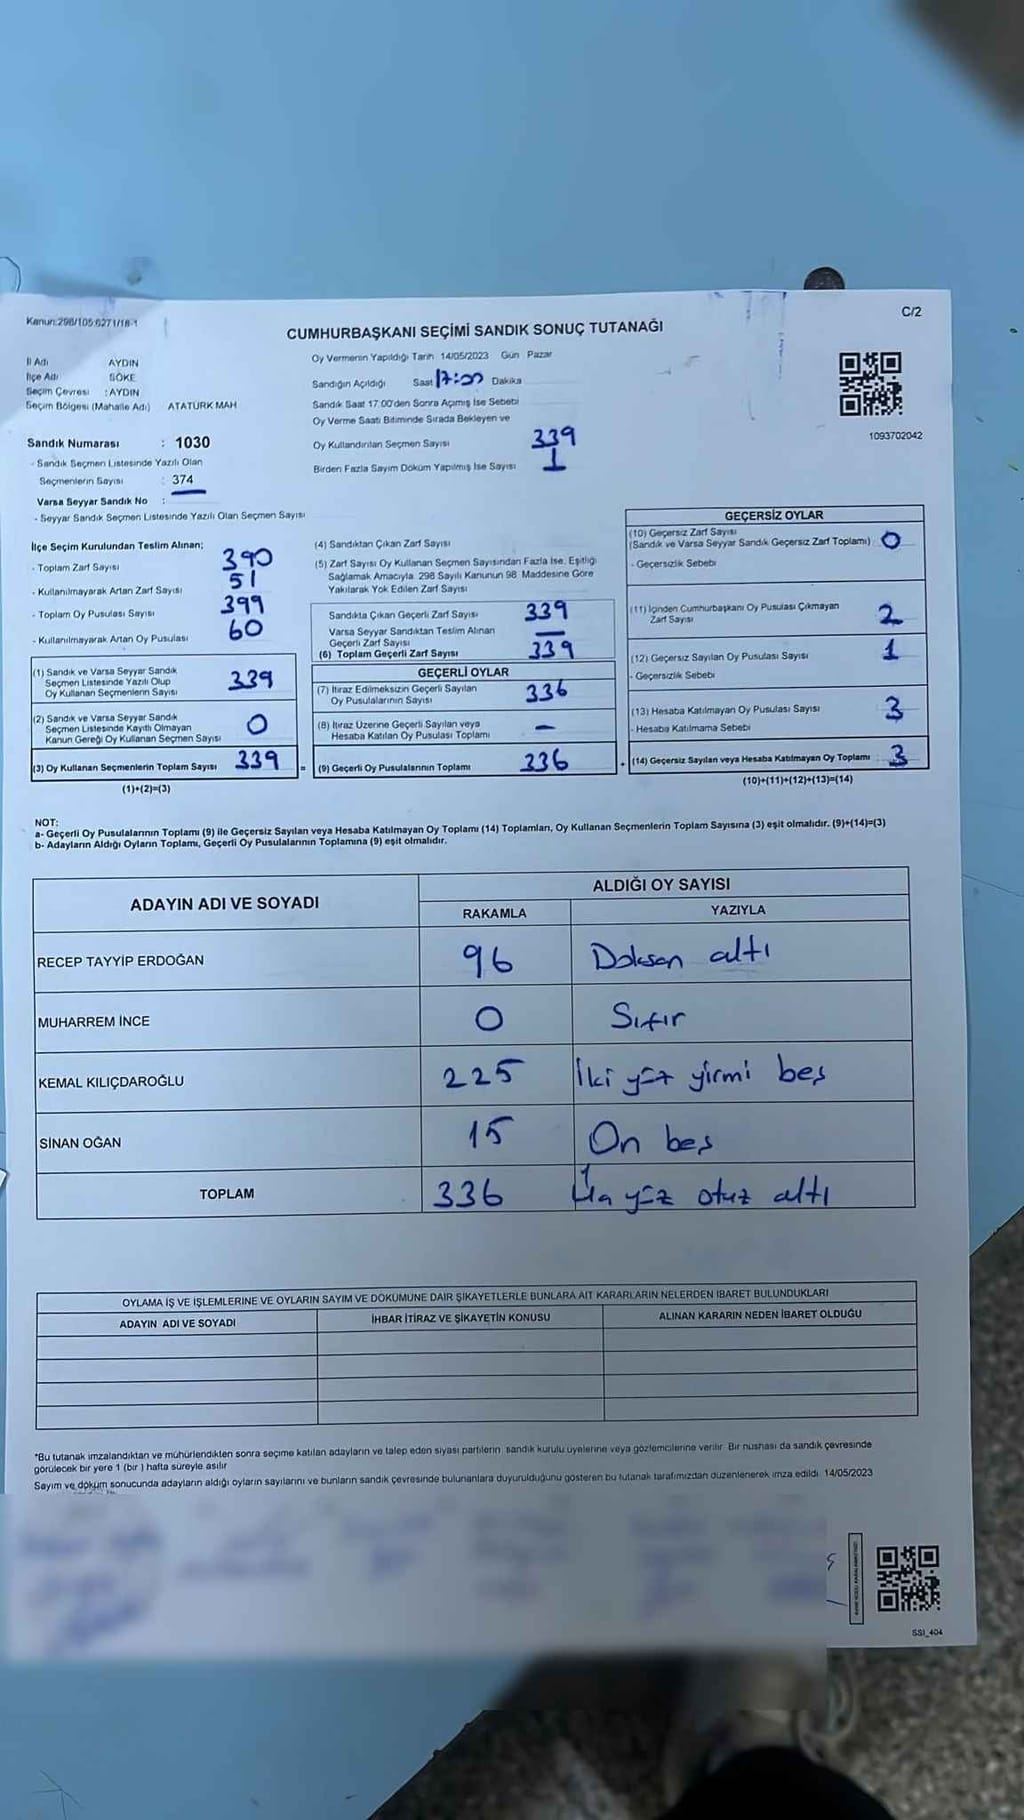 Kanun:298/105:6271/18-1
C/2
CUMHURBAŞKANI SEÇİMİ SANDIK SONUÇ TUTANAĞI
İl Adı AYDIN
İlçe Adı SÖKE
Seçim Çevresi : AYDIN
Seçim Bölgesi (Mahalle Adı) ATATÜRK MAH
Sandık Numarası : 1030
- Sandık Seçmen Listesinde Yazılı Olan
Seçmenlerin Sayısı : 374
Varsa Seyyar Sandık No :
- Seyyar Sandık Seçmen Listesinde Yazılı Olan Seçmen Sayısı
Oy Vermenin Yapıldığı Tarih 14/05/2023 Gün Pazar
Sandığın Açıldığı Saat 17:00 Dakika
Sandık Saat 17.00'den Sonra Açmış İse Sebebi
Oy Verme Saati Bitiminde Sırada Bekleyen ve
Oy Kullandırılan Seçmen Sayısı 339
Birden Fazla Sayım Döküm Yapılmış İse Sayısı 1
1093702042
İlçe Seçim Kurulundan Teslim Alınan;
- Toplam Zarf Sayısı 390
- Kullanılmayarak Artan Zarf Sayısı 51
- Toplam Oy Pusulası Sayısı 399
- Kullanılmayarak Artan Oy Pusulası 60
(1) Sandık ve Varsa Seyyar Sandık
Seçmen Listesinde Yazılı Olup
Oy Kullanan Seçmenlerin Sayısı 339
(2) Sandık ve Varsa Seyyar Sandık
Seçmen Listesinde Kayıtlı Olmayan
Kanun Gereği Oy Kullanan Seçmen Sayısı 0
(3) Oy Kullanan Seçmenlerin Toplam Sayısı 339 =
(1)+(2)=(3)
(4) Sandıktan Çıkan Zarf Sayısı
(5) Zarf Sayısı Oy Kullanan Seçmen Sayısından Fazla İse, Eşitliği
Sağlamak Amacıyla 298 Sayılı Kanunun 98 Maddesine Göre
Yakılarak Yok Edilen Zarf Sayısı
Sandıkta Çıkan Geçerli Zarf Sayısı 339
Varsa Seyyar Sandıktan Teslim Alınan
Geçerli Zarf Sayısı —
(6) Toplam Geçerli Zarf Sayısı 339
GEÇERLİ OYLAR
(7) İtiraz Edilmeksizin Geçerli Sayılan
Oy Pusulalarının Sayısı 336
(8) İtiraz Üzerine Geçerli Sayılan veya
Hesaba Katılan Oy Pusulası Toplamı —
(9) Geçerli Oy Pusulalarının Toplamı 336 +
GEÇERSİZ OYLAR
(10) Geçersiz Zarf Sayısı
(Sandık ve Varsa Seyyar Sandık Geçersiz Zarf Toplamı) 0
- Geçersizlik Sebebi
(11) İçinden Cumhurbaşkanı Oy Pusulası Çıkmayan
Zarf Sayısı 2
(12) Geçersiz Sayılan Oy Pusulası Sayısı 1
- Geçersizlik Sebebi
(13) Hesaba Katılmayan Oy Pusulası Sayısı 3
- Hesaba Katılmama Sebebi
(14) Geçersiz Sayılan veya Hesaba Katılmayan Oy Toplamı 3
(10)+(11)+(12)+(13)=(14)
NOT:
a- Geçerli Oy Pusulalarının Toplamı (9) ile Geçersiz Sayılan veya Hesaba Katılmayan Oy Toplamı (14) Toplamları, Oy Kullanan Seçmenlerin Toplam Sayısına (3) eşit olmalıdır. (9)+(14)=(3)
b- Adayların Aldığı Oyların Toplamı, Geçerli Oy Pusulalarının Toplamına (9) eşit olmalıdır.
ADAYIN ADI VE SOYADI ALDIĞI OY SAYISI
RAKAMLA YAZIYLA
RECEP TAYYİP ERDOĞAN 96 Doksan altı
MUHARREM İNCE 0 Sıfır
KEMAL KILIÇDAROĞLU 225 İki yüz yirmi beş
SİNAN OĞAN 15 On beş
TOPLAM 336 Üç yüz otuz altı
OYLAMA İŞ VE İŞLEMLERİNE VE OYLARIN SAYIM VE DÖKÜMÜNE DAİR ŞİKAYETLERLE BUNLARA AİT KARARLARIN NELERDEN İBARET BULUNDUKLARI
ADAYIN ADI VE SOYADI İHBAR İTİRAZ VE ŞİKAYETİN KONUSU ALINAN KARARIN NEDEN İBARET OLDUĞU
*Bu tutanak imzalandıktan ve mühürlendikten sonra seçime katılan adayların ve talep eden siyasi partilerin sandık kurulu üyelerine veya gözlemcilerine verilir Bir nüshası da sandık çevresinde
görülecek bir yere 1 (bir ) hafta süreyle asılır
Sayım ve döküm sonucunda adayların aldığı oyların sayılarını ve bunların sandık çevresinde bulunanlara duyurulduğunu gösteren bu tutanak tarafımızdan düzenlenerek imza edildi. 14/05/2023
SSI_404